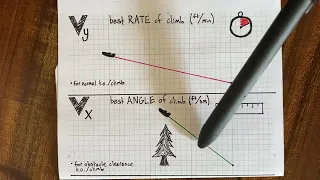 Vy
best RATE of climb (ft/mn)
* for normal t.o./climb
Vx
best ANGLE of climb (ft/nm)
* for obstacle clearance
t.o./climb